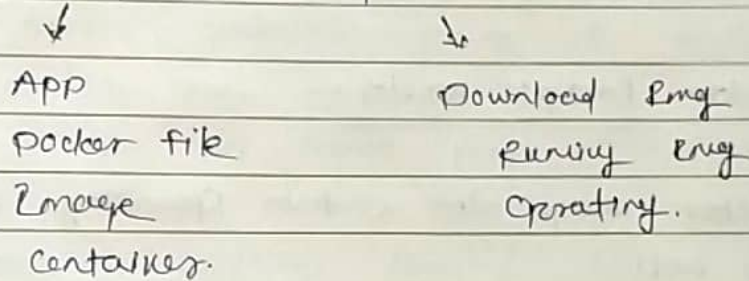 App
Docker file
Image
Container.
Download Img
Runing Img
Oprating.